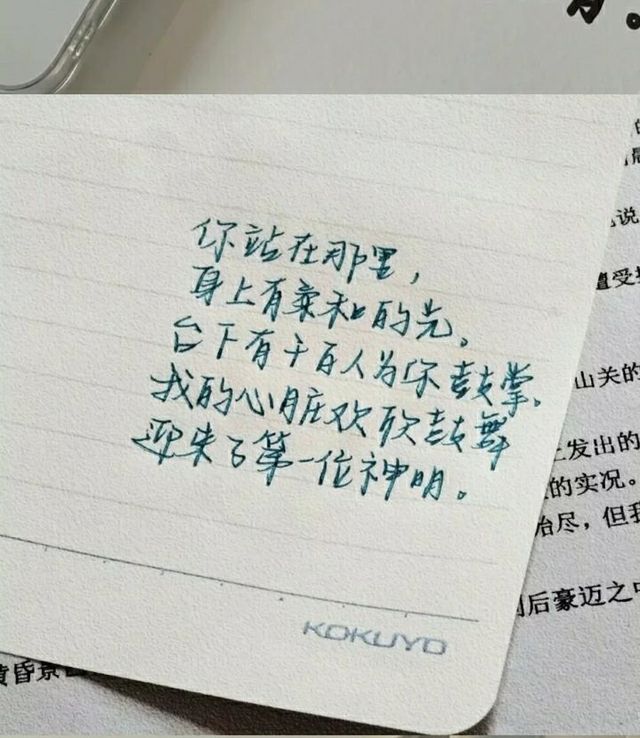 你站在那里，
身上有柔和的光。
台下有千百人为你鼓掌、
我的心脏欢欣鼓舞
迎来了第一位神明。
KOKUYO
说
遭受
山关的
上发出的
的实况。
殆尽，但我
后豪迈之中
黄昏景